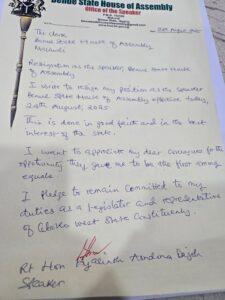 Benue State House of Assembly
Office of the Speaker
24th August, 2025
The Clerk
Benue State House of Assembly
Makurdi
Resignation as the Speaker, Benue State House
of Assembly
I wish to resign my position as the Speaker
Benue State House of Assembly effective today,
24th August, 2025.
This is done in good faith and in the best
interest of the state.
I want to appreciate my dear colleagues for the
opportunity they gave me to be the first among
equals.
I pledge to remain committed to my
duties as a Legislator and representative
of Gboko West State Constituency.
Rt Hon Hyacinth Aondona Dajoh
Speaker